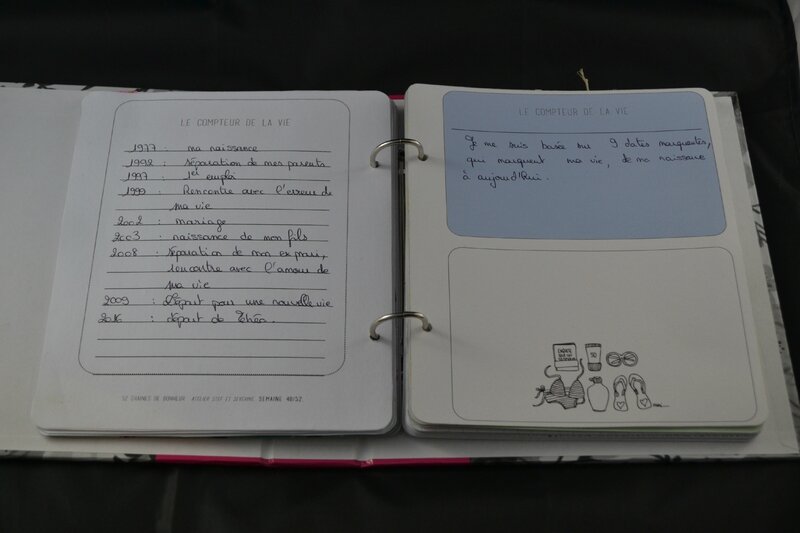 LE COMPTEUR DE LA VIE
1977 : ma naissance
1992 : séparation de mes parents
1997 : 1er emploi
1999 : Rencontre avec l'erreur de
ma vie
2002 : mariage
2003 : naissance de mon fils
2008 : séparation de mon ex
rencontre avec l'amour de
ma vie
2009 : Départ pour une nouvelle vie
2016 : départ de Théo.
52 GRAINES DE BONHEUR ATELIER STEF ET SEVERINE SEMAINE 40/52
LE COMPTEUR DE LA VIE
Je me suis basée sur 9 dates marquantes,
qui marquent ma vie, de ma naissance
à aujourd'hui.
50